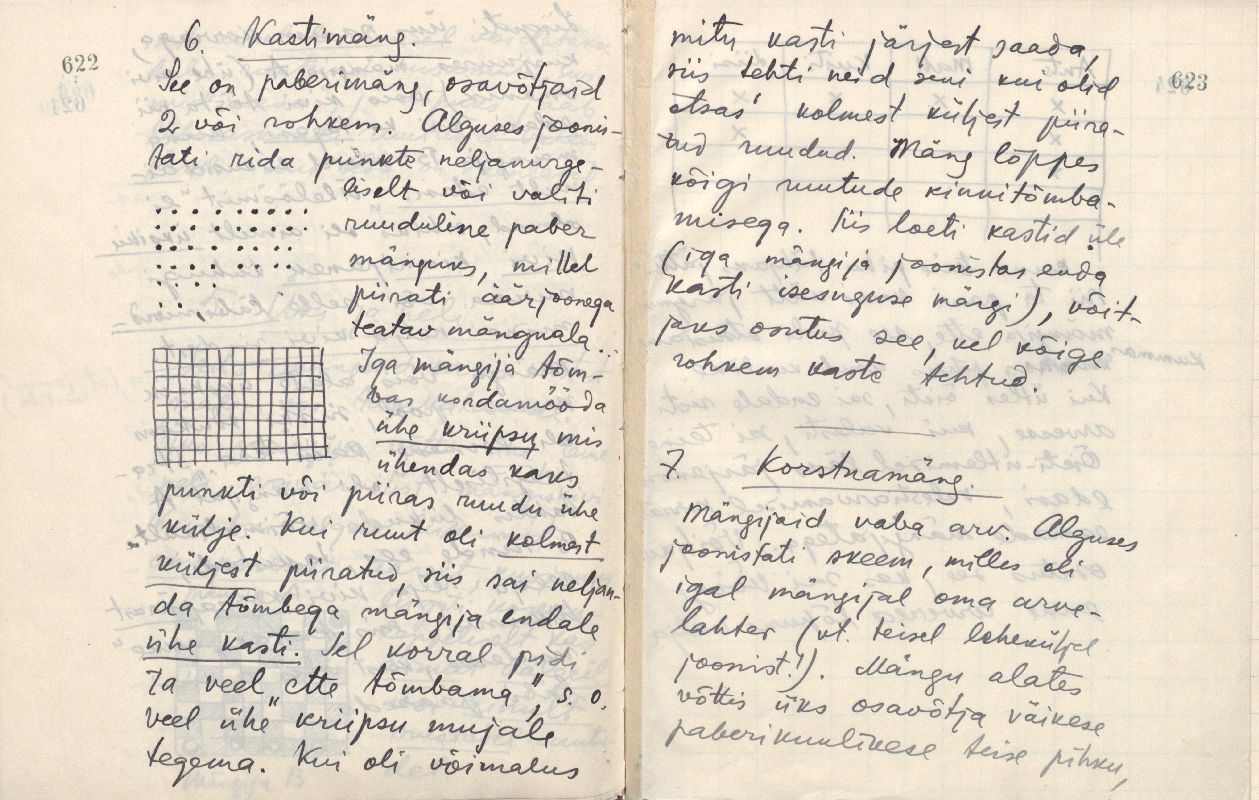 622
6. Kastimäng.
See on paberimäng, osavõtjaid
2 või rohkem. Alguses joonis-
tati rida punkte neljanurge-
liselt või valiti
ruuduline paber
mänguks, millel
piirati äärjoonega
teatav mänguala.
Iga mängija tõm-
bas kordamööda
ühe kriipsu, mis
ühendas kaks
punkti või piiras ruudu ühe
külje. Kui ruut oli kolmest
küljest piiratud, siis sai neljan-
da tõmbega mängija endale
ühe kasti. Sel korral pidi
ta veel „ette tõmbama", s.o.
veel ühe kriipsu mujale
tegema. Kui oli võimalus
623
mitu kasti järjest saada,
siis tehti neid seni kui olid
otsas kolmest küljest piira-
tud ruudud. Mäng lõppes
kõigi ruutude kinnitõmba-
misega. Siis loeti kastid üle
(iga mängija joonistas enda
kasti isesuguse märgi), võit-
jaks osutus see, kel kõige
rohkem kaste tehtud.
7. Korstnamäng.
Mängijaid vaba arv. Alguses
joonistati skeem, milles oli
igal mängijal oma arve-
lahter (vt. teisel leheküljel
joonist!). Mängu alates
võttis üks osavõtja väikese
paberikuulikese teise pihku,